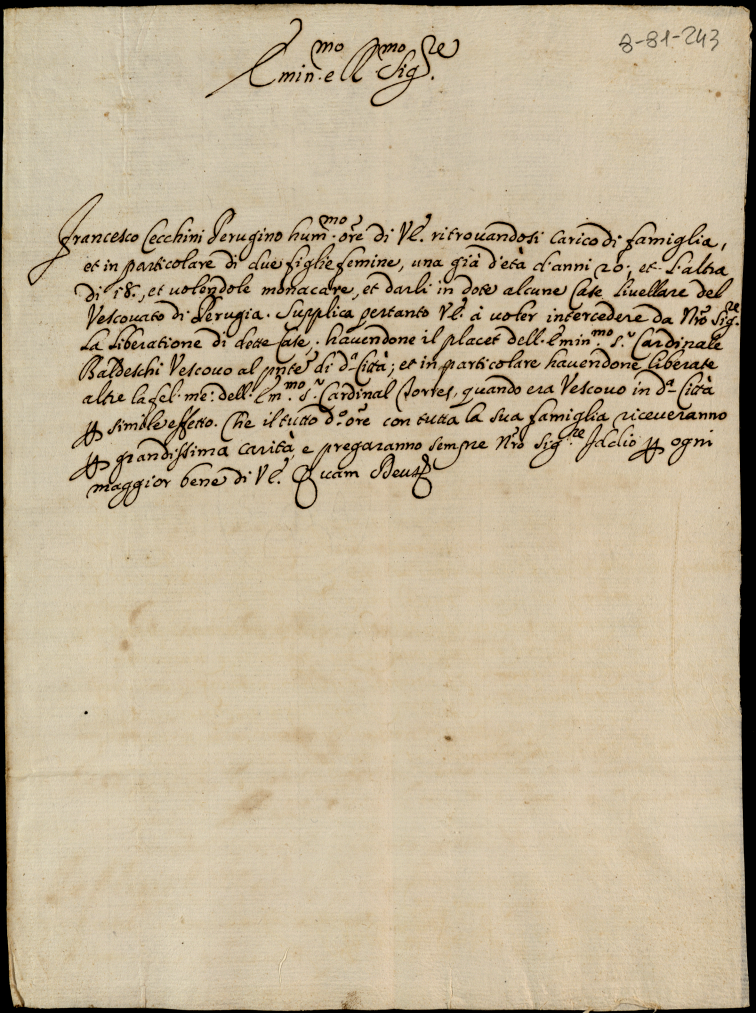 8-81-243
Emin.mo e Ill.mo Sig.re
Francesco Cecchini Perugino hum.mo ore di VE. ritrovandosi carico di famiglia,
et in particolare di due figlie femine, una già d'età d'anni 26. et l'altra
di 18., et volendole monacare, et darli in dote alcune Case livellare del
Vescovato di Perugia. Supplica pertanto VE. à voler intercedere da Nro Sig.re
la liberatione di dette Case, havendone il placet dell'Emin.mo S.r Cardinale
Baldeschi Vescovo al pnte di d.a Città; et in particolare havendone liberate
altre la fel. me: dell'Em.mo S.r Cardinal Torres, quando era Vescovo in d.a Città
p simile effetto. Che il tutto d.o ore con tutta la sua famiglia riceveranno
p grandissima carità, e pregaranno sempre Nro Sig.re Iddio p ogni
maggior bene di VE. Quam Deus